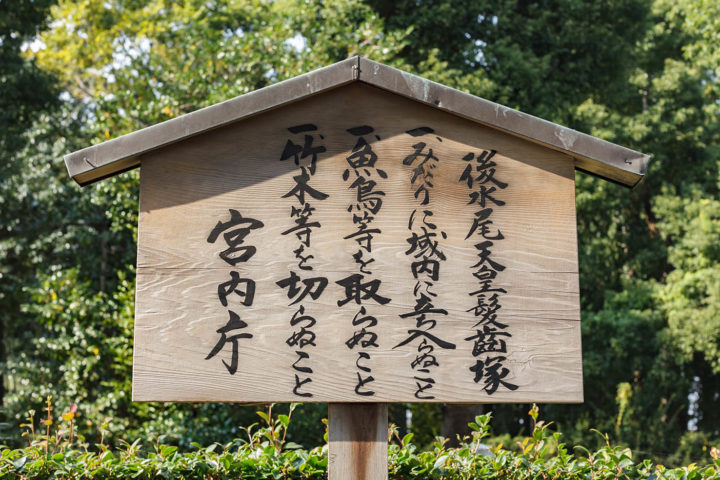 後水尾天皇髮歯塚
一みだりに域内に立入らぬこと
一魚鳥等を取らぬこと
一竹木等を切らぬこと
宮内庁